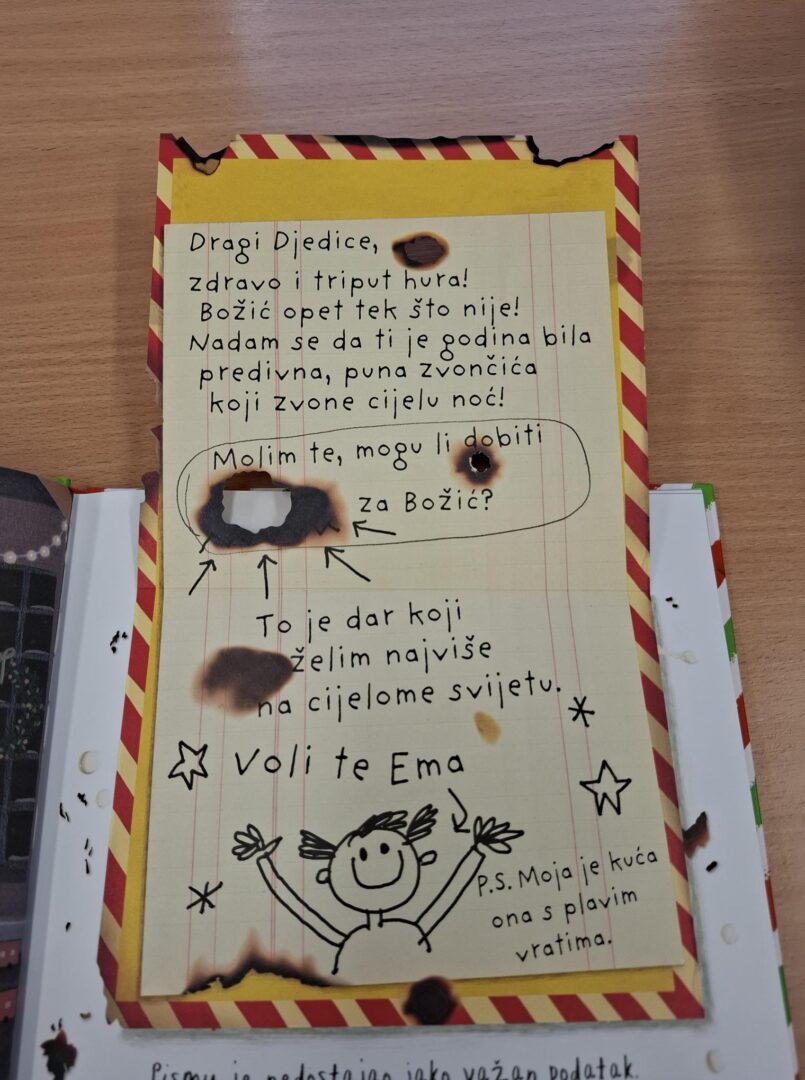 Dragi Djedice,
zdravo i triput hura!
Božić opet tek što nije!
Nadam se da ti je godina bila
predivna, puna zvončića
koji zvone cijelu noć!
Molim te, mogu li dobiti
za Božić?
To je dar koji
želim najviše
na cijelome svijetu.
Voli te Ema
P.S. Moja je kuća
ona s plavim
vratima.
Pismu je nedostajao jako važan podatak.